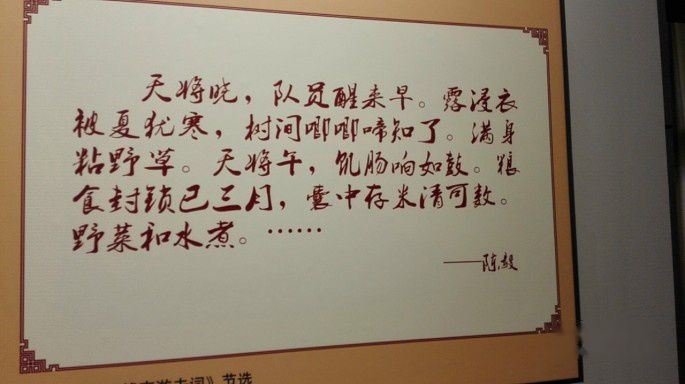 天将晓，队员醒来早。露浸衣
被夏犹寒，树间唧唧啼知了。满身
粘野草。天将午，饥肠响如鼓。粮
食封锁已三月，囊中存米清可数。
野菜和水煮。……
——陈毅
游击词》节选